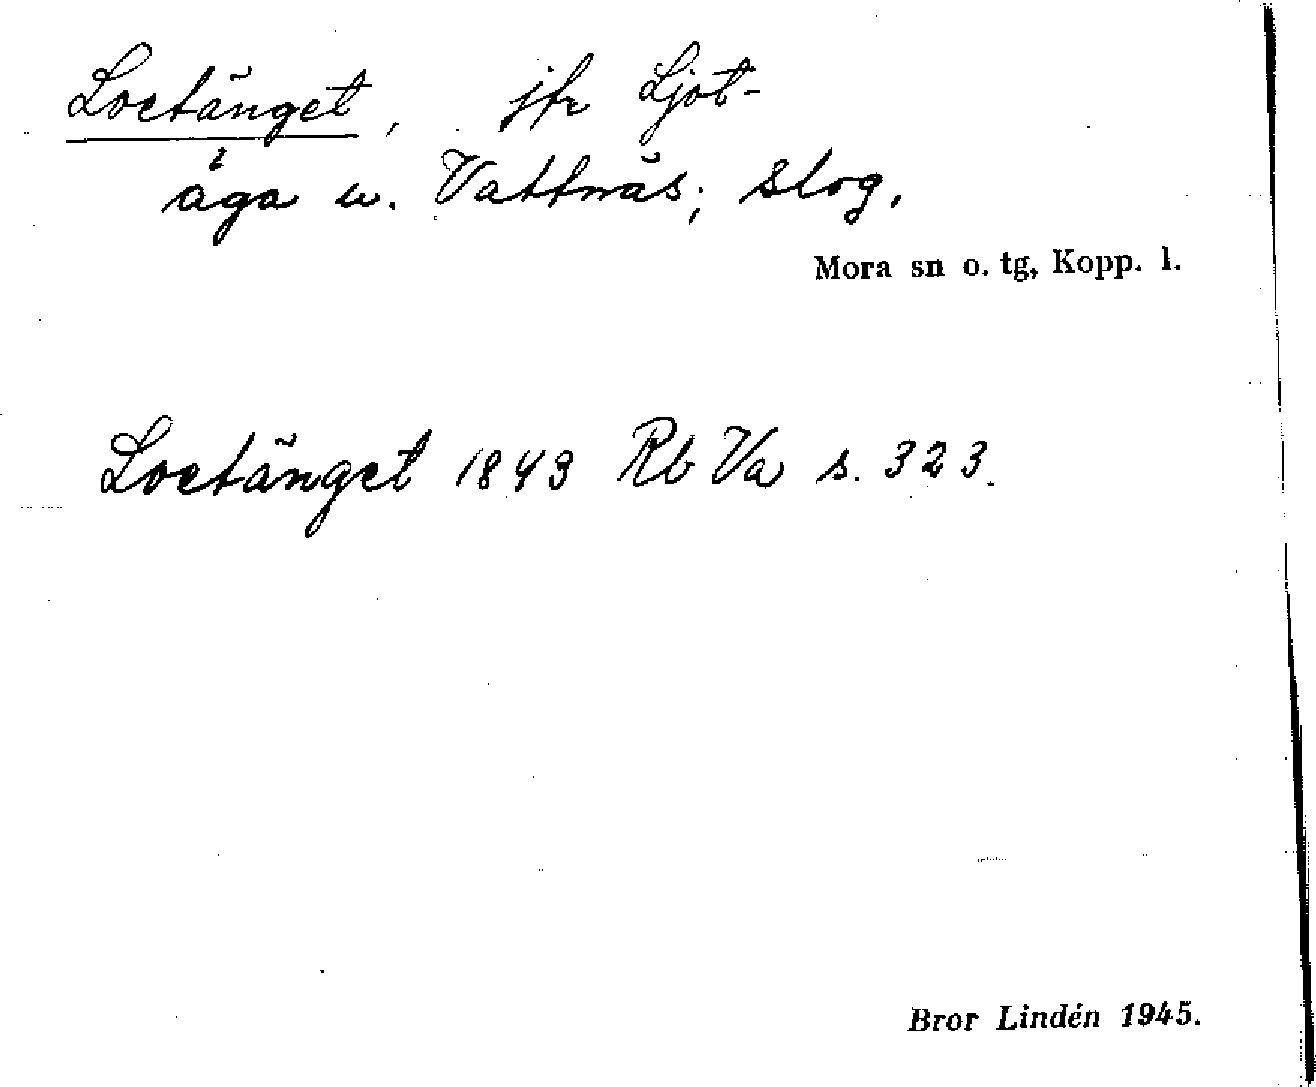 Loetänget, jfr Ljot-
åga u. Vattnäs; slog.
Mora sn o. tg, Kopp. l.
Loetänget 1843 Rb Va s. 323.
Bror Lindén 1945.